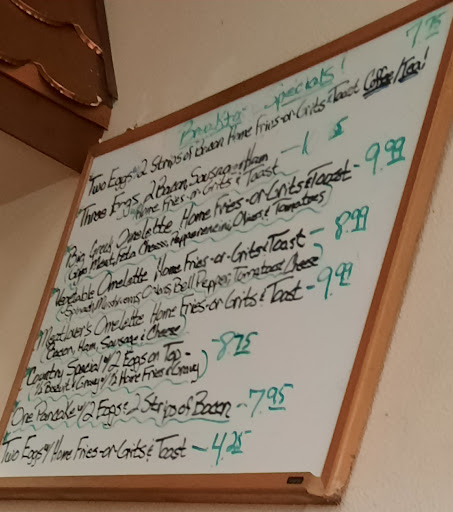 Breakfast Specials!
Two Eggs w/ 2 Strips of Bacon Home Fries-or-Grits & Toast Coffee/Tea! 7.75
Three Eggs, 2 Bacon, Sausage or Ham
Home Fries-or-Grits & Toast
Big Greek Omelette Home Fries-or-Grits & Toast - 9.99
Gyro Meat, Feta Cheese, Pepperoncini, Olives & Tomatoes
Vegetable Omelette Home Fries-or-Grits & Toast - 8.99
(Spinach, Mushrooms, Onions, Bell Pepper, Tomatoes, Cheese
Meatlover's Omelette Home Fries-or-Grits & Toast - 9.99
(Bacon, Ham, Sausage & Cheese)
Country Special w/ 2 Eggs on Top - 8.75
1/2 Biscuit & Gravy w/ 1/2 Home Fries & Gravy)
One Pancake w/ 2 Eggs & 2 Strips of Bacon - 7.95
Two Eggs w/ Home Fries-or-Grits & Toast - 4.25